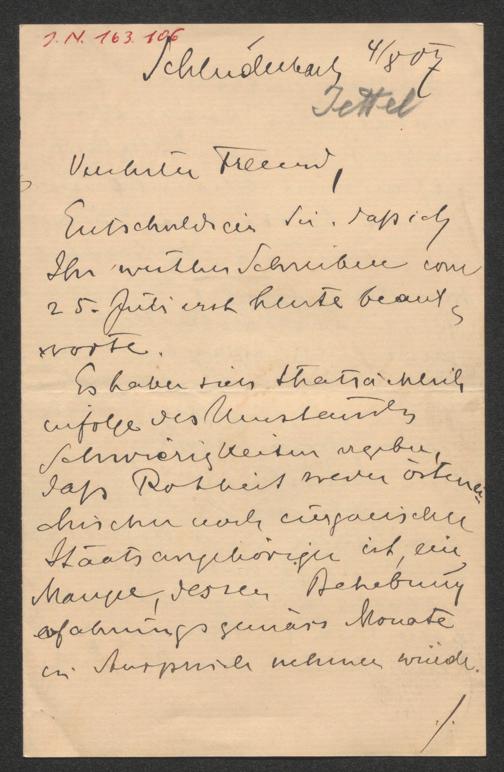 J.N. 163.106
Schluderbach 4/8 07
Tettel
Verehrter Freund,
Entschuldigen Sie, dass ich
Ihr werthes Schreiben vom
25. Juli erst heute beant-
worte.
Es haben sich thatsächlich
infolge des Umstandes
Schwierigkeiten ergeben,
daß Rotheit weder österrei-
chischer noch ungarischer
Staatsangehöriger ist, ein
Mangel, dessen Behebung
erfahrungsgemäss Monate
in Anspruch nehmen würde.
./.